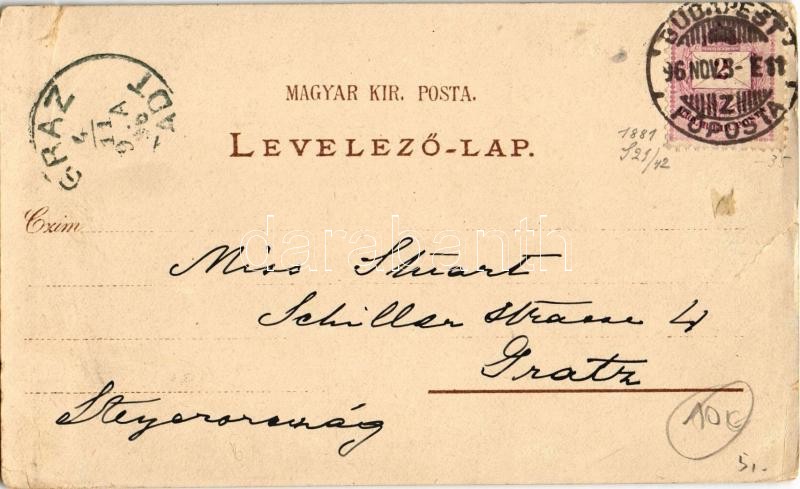 BUDAPEST
96 NOV. 3- E 11
Z
FŐPOSTA
GRAZ STADT
4
11
9 A
96
MAGYAR KIR. POSTA.
LEVELEZŐ-LAP.
1881
S21/42
-35
Czim
darabanth
Miss Stuart
Schiller Strasse 4
Gratz
Steyerország
5,-